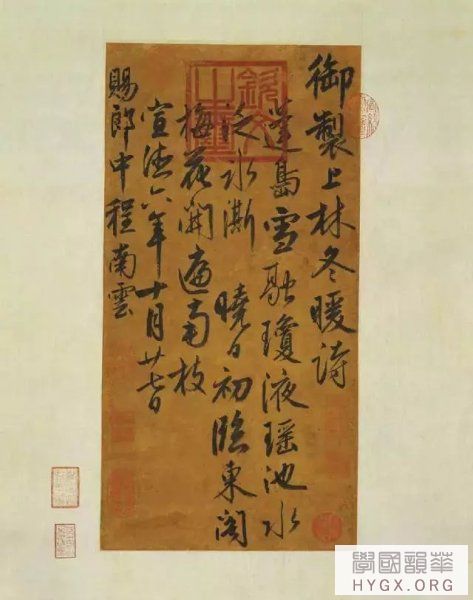 御製上林冬暖詩
蓬島雪融瓊液瑶池水
泛冰澌 曉日初臨東閣
梅花開遍南枝
宣德六年十月廿七日
賜郎中程南雲
學國韻華
HYGX.ORG